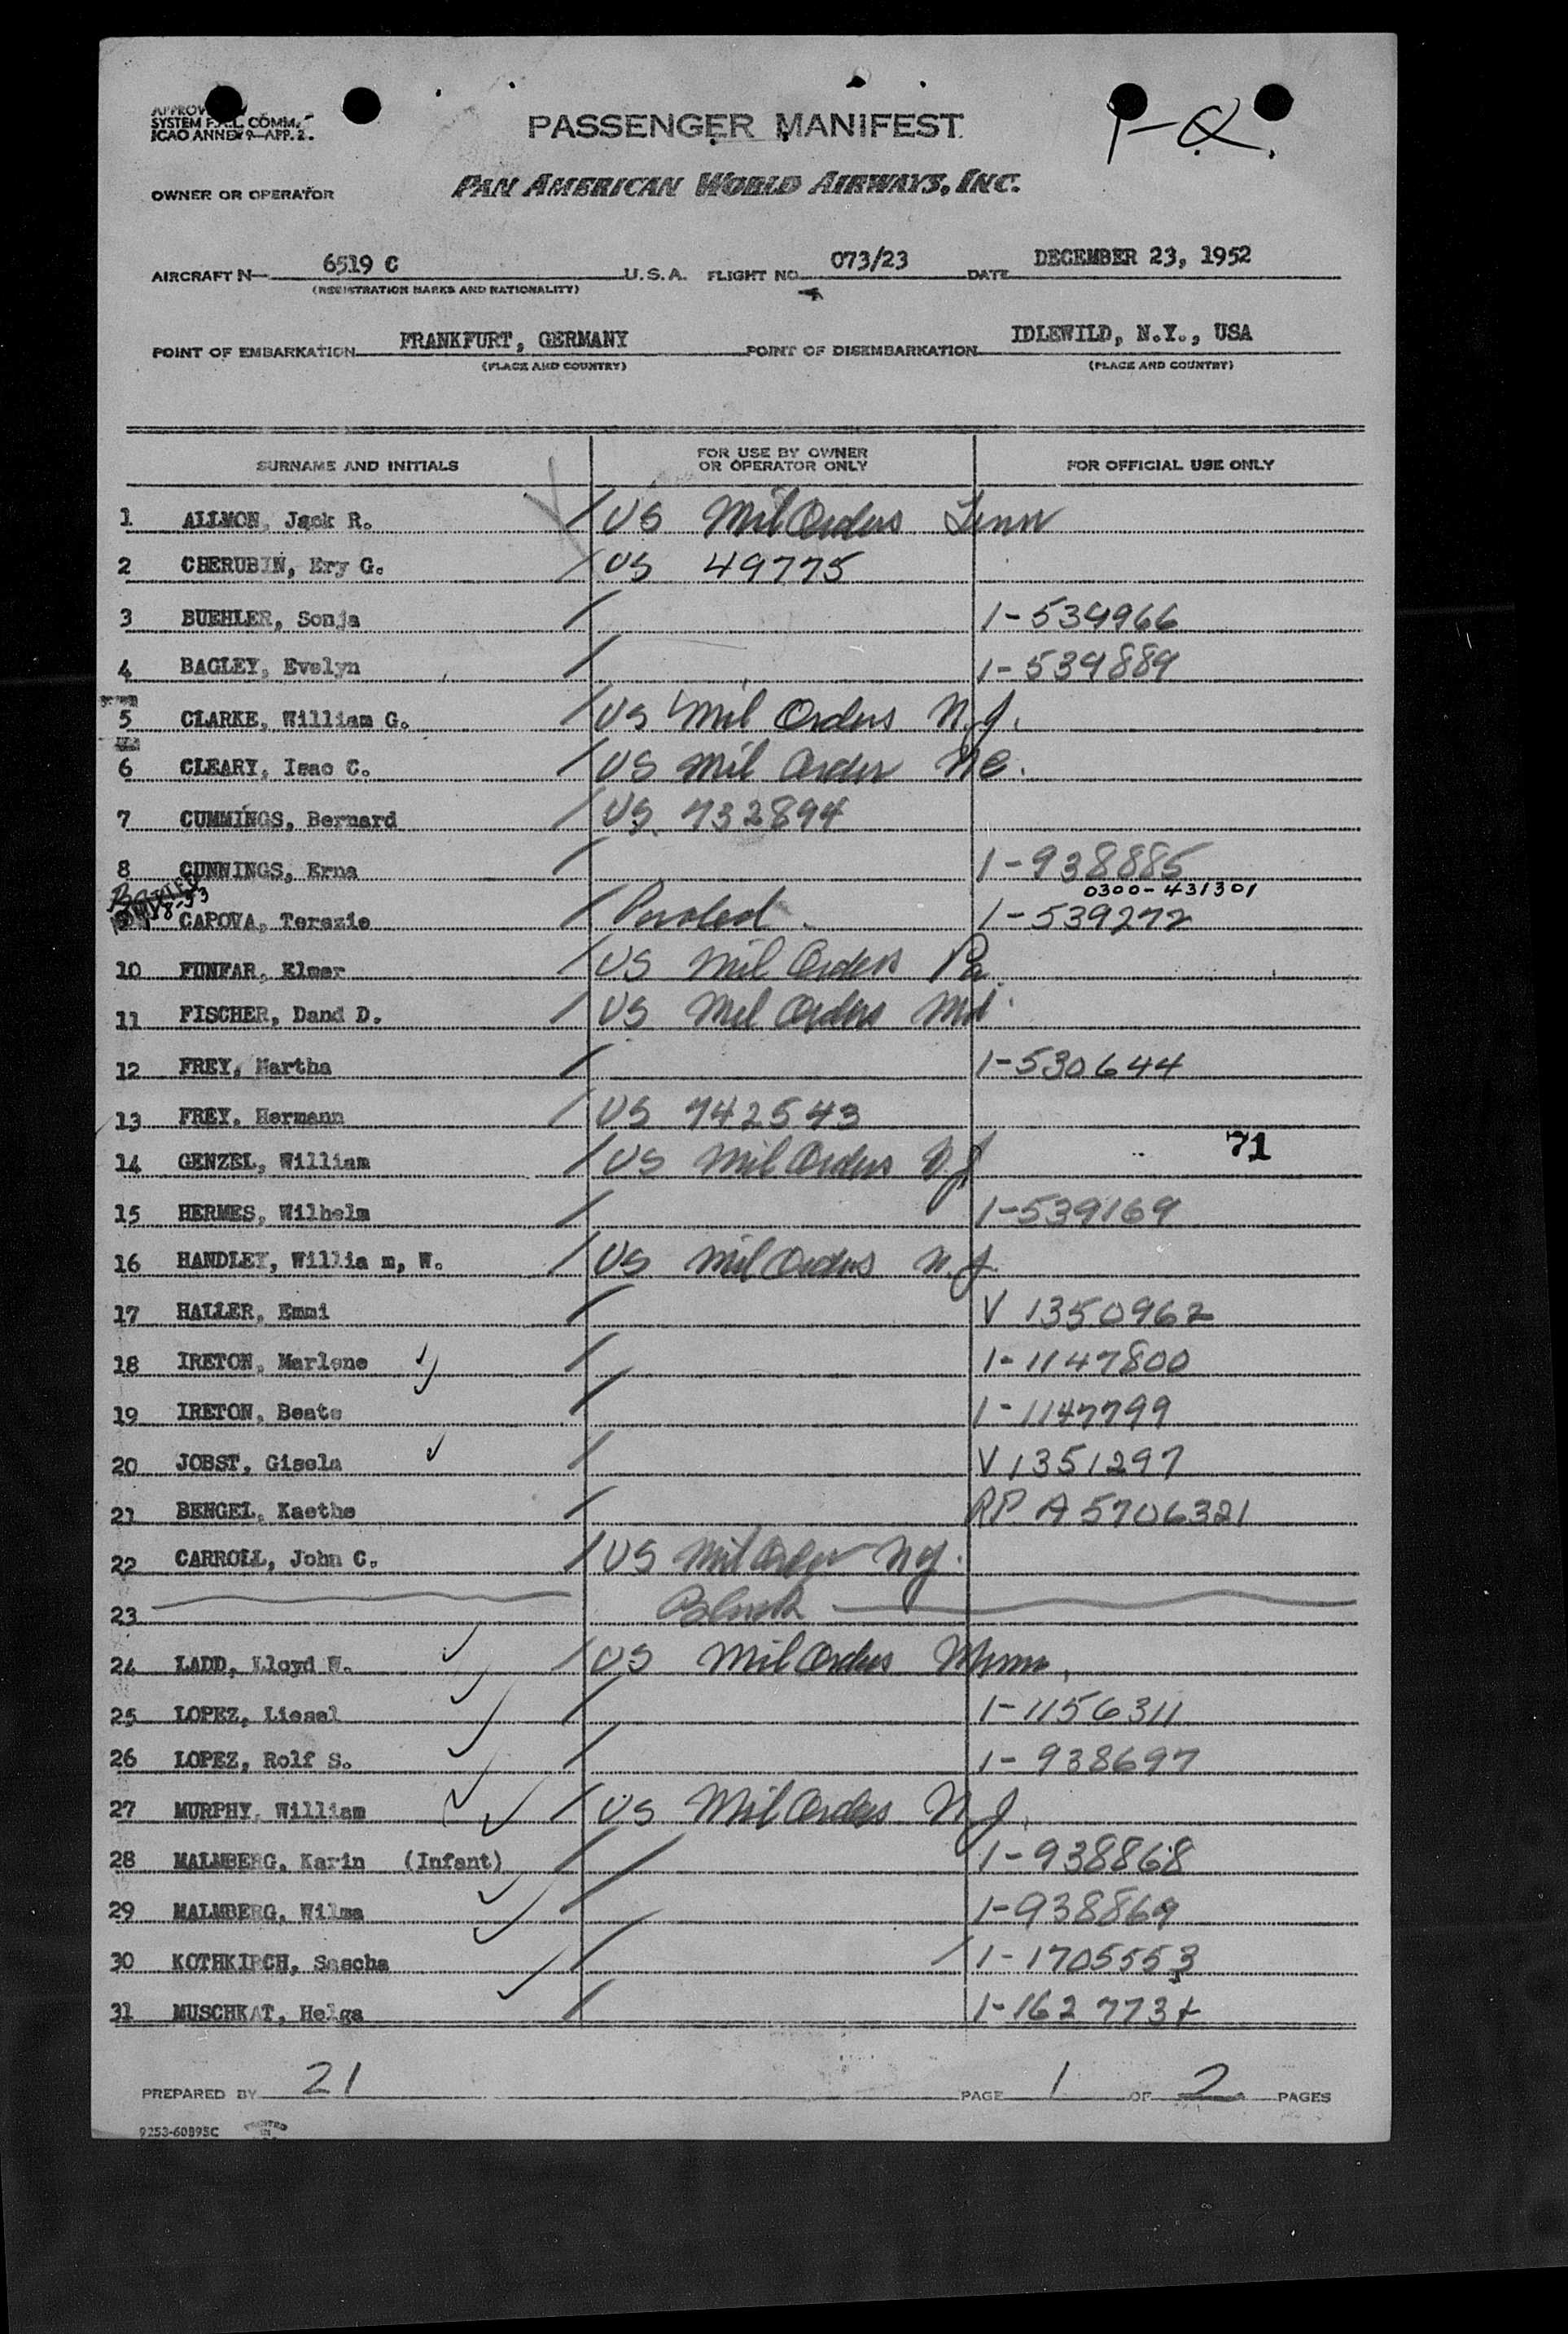 APPROV
SYSTEM F.A.L. COMM.
ICAO ANNEX 9-APP. 2.
PASSENGER MANIFEST
1-Q.
OWNER OR OPERATOR PAN AMERICAN WORLD AIRWAYS, INC.
AIRCRAFT N- 6519 C U.S.A. FLIGHT NO. 073/23 DATE DECEMBER 23, 1952
(REGISTRATION MARKS AND NATIONALITY)
POINT OF EMBARKATION FRANKFURT, GERMANY POINT OF DISEMBARKATION IDLEWILD, N.Y., USA
(PLACE AND COUNTRY) (PLACE AND COUNTRY)
SURNAME AND INITIALS FOR USE BY OWNER OR OPERATOR ONLY FOR OFFICIAL USE ONLY
1 ALLMON, Jack R. / US Mil Orders Tenn
2 CHERUBIN, Ery G. / US 49775
3 BUEHLER, Sonja / 1-539966
4 BAGLEY, Evelyn / 1-539889
5 CLARKE, William G. / US Mil Orders N.J.
6 CLEARY, Isac C. / US Mil Order NC.
7 CUMMINGS, Bernard / US 732894
8 CUNNINGS, Erna / 1-938885
0300-431301
CAPOVA, Terezie / Paroled 1-539272
10 FUNFAR, Elmer / US Mil Orders Pa
11 FISCHER, Dand D. / US Mil Orders Md
12 FREY, Martha / 1-530644
13 FREY, Hermann / US 742543
14 GENZEL, William / US Mil Orders NJ 71
15 HERMES, Wilhelm / 1-539169
16 HANDLEY, Willia m, W. / US Mil Orders N.J.
17 HALLER, Emmi / V 1350962
18 IRETON, Marlene / 1-1147800
19 IRETON, Beate / 1-1147799
20 JOBST, Gisela / V 1351297
21 BENGEL, Kaethe / RP A5706321
22 CARROLL, John C. / US Mil Order NY.
23 Blank
24 LADD, Lloyd W. / US Mil Orders Minn.
25 LOPEZ, Liesel / 1-1156311
26 LOPEZ, Rolf S. / 1-938697
27 MURPHY, William / US Mil Orders N.J.
28 MALMBERG, Karin (Infant) / 1-938868
29 MALMBERG, Wilma / 1-938869
30 KOTHKIRCH, Sascha / 1-1705553
31 MUSCHKAT, Helga / 1-162773
PREPARED BY 21 PAGE 1 OF 2 PAGES
9253-60895C PRINTED IN